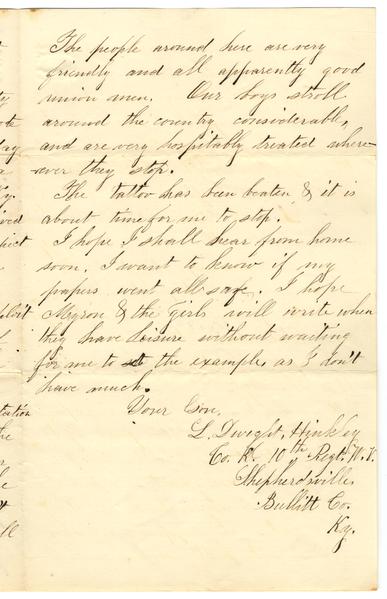 The people around here are very
friendly and all apparently good
union men. Our boys stroll
around the country considerable,
and are very hospitably treated where-
ever they stop.
The tattoo has been beaten & it is
about time for me to stop.
I hope I shall hear from home
soon. I want to know if my
papers went all safe. I hope
Myron & the girls will write when
they have leisure without waiting
for me to the example, as I don't
have much.
Your Son,
L. Dwight Hinkley
Co. K. 10th Regt. W. V.
Shepherdsville
Bullitt Co.
Ky.